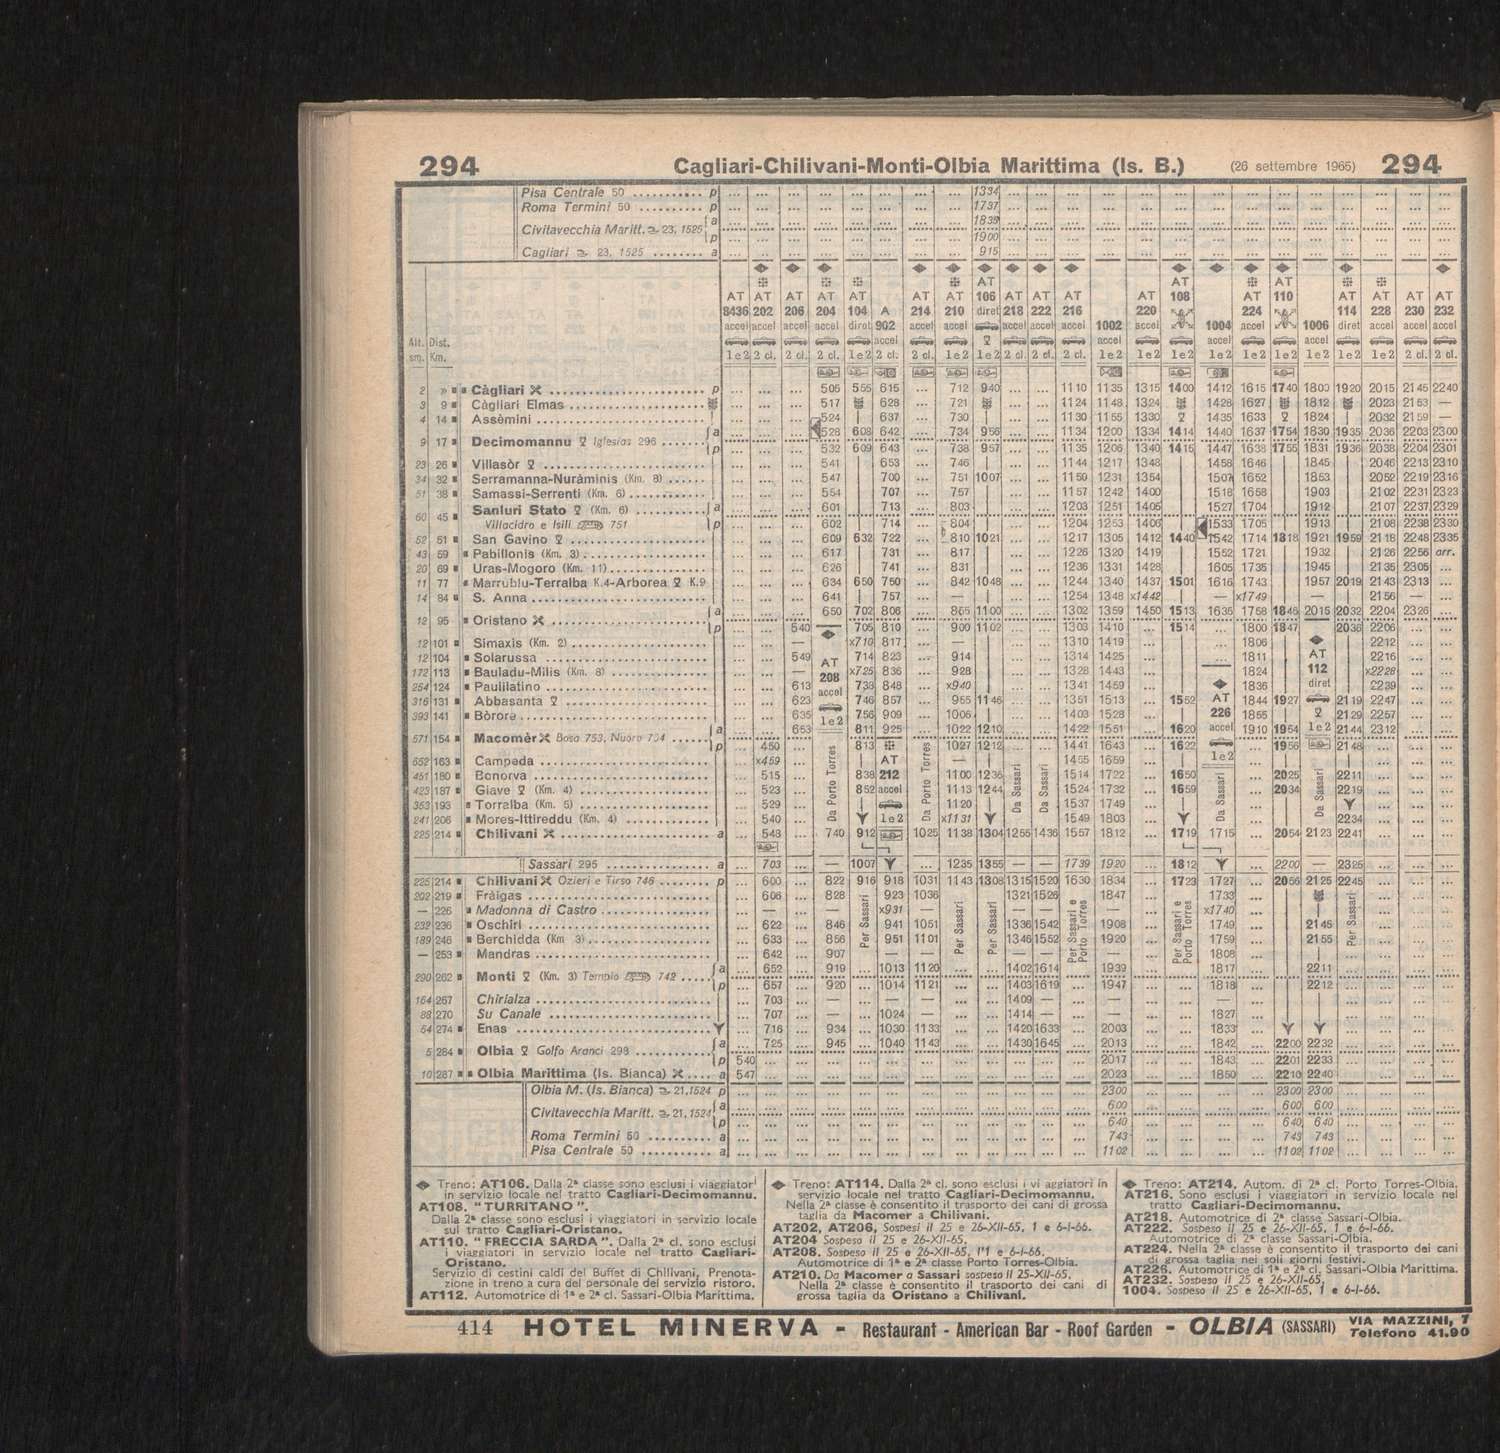 294 Cagliari-Chilivani-Monti-Olbia Marittima (Is. B.) (26 settembre 1965) 294
Pisa Centrale 50 p 1334
Roma Termini 50 p 1737
Civitavecchia Maritt. 23, 1525 a 1835
p 1900
Cagliari 23, 1525 a 915
AT 8436 accel 1e2
AT 202 accel 2 cl.
AT 206 accel 2 cl.
AT 204 accel 2 cl.
AT 104 diret 1e2
A 902 accel 2 cl.
AT 214 accel 2 cl.
AT 210 accel 1e2
AT 106 diret 1e2
AT 218 accel 2 cl.
AT 222 accel 2 cl.
AT 216 accel 2 cl.
1002 accel 1e2
AT 220 accel 1e2
AT 108 1e2
1004 accel 1e2
AT 224 accel 1e2
AT 110 1e2
1006 accel 1e2
AT 114 diret 1e2
AT 228 accel 1e2
AT 230 accel 2 cl.
AT 232 accel 2 cl.
Alt. sm. Dist. Km.
2 » Càgliari p 505 555 615 712 940 1110 1135 1315 1400 1412 1615 1740 1800 1920 2015 2145 2240
3 9 Càgliari Elmas 517 628 721 1124 1148 1324 1428 1627 1812 2023 2153 —
4 14 Assèmini 524 637 730 1130 1155 1330 1435 1633 1824 2032 2159 —
9 17 Decimomannu Iglesias 296 a 528 608 642 734 956 1134 1200 1334 1414 1440 1637 1754 1830 1935 2036 2203 2300
p 532 609 643 738 957 1135 1206 1340 1415 1447 1638 1755 1831 1936 2038 2204 2301
23 26 Villasòr 541 653 746 1144 1217 1348 1458 1646 1845 2046 2213 2310
34 32 Serramanna-Nuràminis (Km. 8) 547 700 751 1007 1150 1231 1354 1507 1652 1853 2052 2219 2316
51 38 Samassi-Serrenti (Km. 6) 554 707 757 1157 1242 1400 1518 1658 1903 2102 2231 2323
60 45 Sanluri Stato (Km. 6) a 601 713 803 1203 1251 1405 1527 1704 1912 2107 2237 2329
Villacidro e Isili 751 p 602 714 804 1204 1253 1406 1533 1705 1913 2108 2238 2330
52 51 San Gavino 609 632 722 810 1021 1217 1305 1412 1440 1542 1714 1818 1921 1959 2118 2248 2335
43 59 Pabillonis (Km. 3) 617 731 817 1226 1320 1419 1552 1721 1932 2126 2256 arr.
20 69 Uras-Mogoro (Km. 11) 626 741 831 1236 1331 1428 1605 1735 1945 2135 2305
11 77 Marrubiu-Terralba K.4-Arborea K.9 634 650 750 842 1048 1244 1340 1437 1501 1616 1743 1957 2019 2143 2313
14 84 S. Anna 641 757 — 1254 1348 x1442 — x1749 — 2156 —
12 95 Oristano a 650 702 806 855 1100 1302 1359 1450 1513 1635 1758 1846 2015 2032 2204 2326
p 540 705 810 900 1102 1303 1410 1514 1800 1847 2036 2206
12 101 Simaxis (Km. 2) — x710 817 — 1310 1419 1806 2212
12 104 Solarussa 549 714 823 914 1314 1425 1811 2216
172 113 Bauladu-Milis (Km. 8) — x725 836 928 1328 1443 1824 x2228
254 124 Paulilatino 613 733 848 x940 1341 1459 1836 2239
316 131 Abbasanta 623 746 857 955 1146 1351 1513 1552 1844 1927 2119 2247
393 141 Bòrore 635 756 909 1006 1403 1528 1855 2129 2257
571 154 Macomèr Bosa 753, Nuoro 754 a 653 811 925 1022 1210 1422 1551 1620 1910 1954 2144 2312
p 450 813 1027 1212 1441 1643 1622 1956 2148
AT 208 accel 1e2
AT 212 accel 1e2
AT 226 accel 1e2
AT 112 diret 1e2
Da Porto Torres
Da Porto Torres
Da Sassari
Da Sassari
Da Sassari
Da Sassari
652 163 Campeda x459 — 1455 1659
451 180 Bonorva 515 838 1100 1236 1514 1722 1650 2025 2211
423 187 Giave (Km. 4) 523 852 1113 1244 1524 1732 1659 2034 2219
353 193 Torralba (Km. 5) 529 1120 1537 1749
241 206 Mores-Ittireddu (Km. 4) 540 x1131 1549 1803 2234
225 214 Chilivani a 548 740 912 1025 1138 1304 1255 1436 1557 1812 1719 1715 2054 2123 2241
Sassari 295 a 703 — 1007 1235 1355 — — 1739 1920 1812 2200 — 2325
225 214 Chilivani Ozieri e Tirso 746 p 600 822 916 918 1031 1143 1308 1315 1520 1630 1834 1723 1727 2056 2125 2245
202 219 Fràigas 606 828 923 1036 1321 1526 1847 1733
— 226 Madonna di Castro — — x931 — — — x1740
232 236 Oschiri 622 846 941 1051 1336 1542 1908 1749 2145
189 246 Berchidda (Km 3) 633 856 951 1101 1346 1552 1920 1759 2155
— 253 Mandras 642 907 — — — — — 1808
290 262 Monti (Km. 3) Tempio 742 a 652 919 1013 1120 1402 1614 1939 1817 2211
p 657 920 1014 1121 1403 1619 1947 1818 2212
164 267 Chirialza 703 — — — 1409 — — —
88 270 Su Canale 707 — 1024 — 1414 — — 1827
54 274 Enas 716 934 1030 1133 1420 1633 2003 1833
5 284 Olbia Golfo Aranci 298 a 725 945 1040 1143 1430 1645 2013 1842 2200 2232
p 540 2017 1843 2201 2233
10 287 Olbia Marittima (Is. Bianca) a 547 2023 1850 2210 2240
Per Sassari
Per Sassari
Per Sassari
Per Sassari e Porto Torres
Per Sassari e Porto Torres
Per Sassari
Olbia M. (Is. Bianca) 21, 1524 p 2300 2300 2300
Civitavecchia Maritt. 21, 1524 a 600 600 600
p 640 640 640
Roma Termini 50 a 743 743 743
Pisa Centrale 50 a 1102 1102 1102
Treno: AT106. Dalla 2ª classe sono esclusi i viaggiatori
in servizio locale nel tratto Cagliari-Decimomannu.
AT108. "TURRITANO".
Dalla 2ª classe sono esclusi i viaggiatori in servizio locale
sul tratto Cagliari-Oristano.
AT110. "FRECCIA SARDA". Dalla 2ª cl. sono esclusi
i viaggiatori in servizio locale nel tratto Cagliari-
Oristano.
Servizio di cestini caldi del Buffet di Chilivani, Prenota-
zione in treno a cura del personale del servizio ristoro.
AT112. Automotrice di 1ª e 2ª cl. Sassari-Olbia Marittima.
Treno: AT114. Dalla 2ª cl. sono esclusi i vi aggiatori in
servizio locale nel tratto Cagliari-Decimomannu.
Nella 2ª classe è consentito il trasporto dei cani di grossa
taglia da Macomer a Chilivani.
AT202, AT206, Sospesi il 25 e 26-XII-65, 1 e 6-I-66.
AT204 Sospeso il 25 e 26-XII-65.
AT208. Sospeso il 25 e 26-XII-65, l'1 e 6-I-66.
Automotrice di 1ª e 2ª classe Porto Torres-Olbia.
AT210. Da Macomer a Sassari sospeso il 25-XII-65.
Nella 2ª classe è consentito il trasporto dei cani di
grossa taglia da Oristano a Chilivani.
Treno: AT214, Autom. di 2ª cl. Porto Torres-Olbia.
AT216. Sono esclusi i viaggiatori in servizio locale nel
tratto Cagliari-Decimomannu.
AT218. Automotrice di 2ª classe Sassari-Olbia.
AT222. Sospeso il 25 e 26-XII-65, 1 e 6-I-66.
Automotrice di 2ª classe Sassari-Olbia.
AT224. Nella 2ª classe è consentito il trasporto dei cani
di grossa taglia nei soli giorni festivi.
AT226. Automotrice di 1ª e 2ª cl. Sassari-Olbia Marittima.
AT232. Sospeso il 25 e 26-XII-65.
1004. Sospeso il 25 e 26-XII-65, 1 e 6-I-66.
414 HOTEL MINERVA - Restaurant - American Bar - Roof Garden - OLBIA (SASSARI) VIA MAZZINI, 7
Telefono 41.90